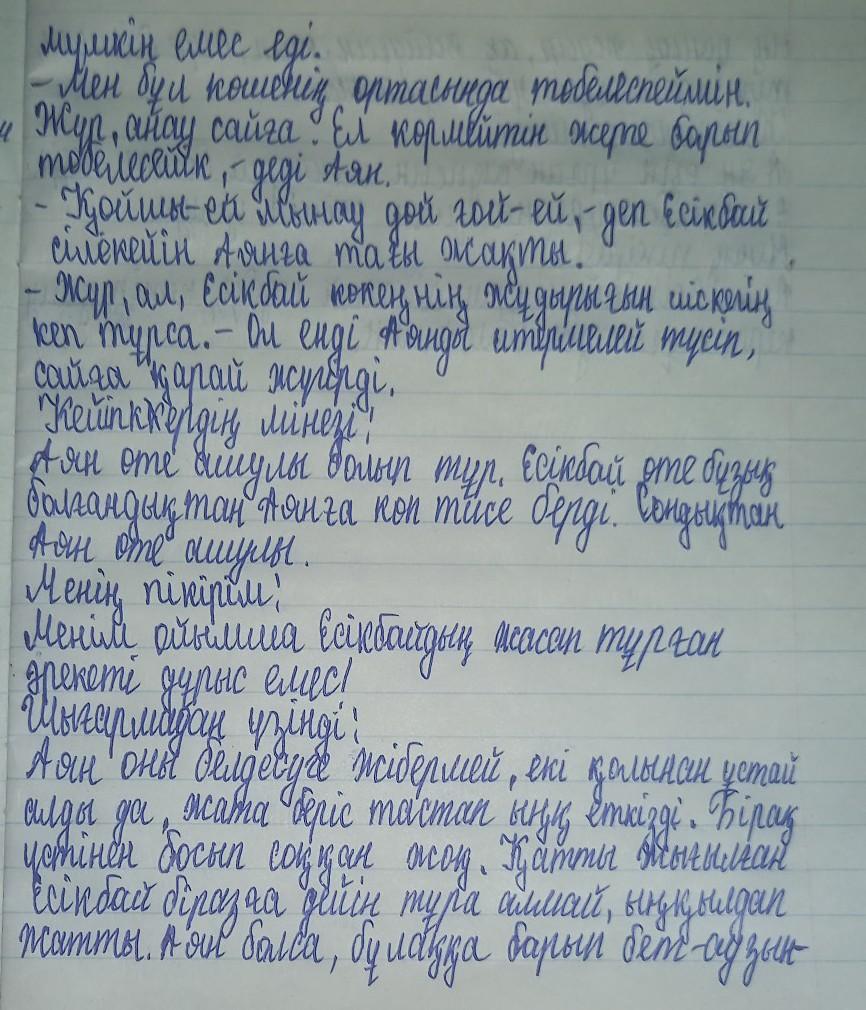 мүмкін емес еді.
– Мен бұл көшенің ортасында төбелеспеймін.
Жүр, анау сайға. Ел көрмейтін жерге барып
төбелесейік, – деді Аян.
– Қойшы-ей мынау дөй ғой-ей, – деп Есікбай
сілекейін Аянға тағы жақты.
– Жүр, ал, Есікбай көкеңнің жұдырығын иіскегің
кеп тұрса. – Ол енді Аянды итермелей түсіп,
сайға қарай жүгірді.
Кейіпкердің мінезі:
Аян өте ашулы болып тұр. Есікбай өте бұзық
болғандықтан Аянға көп тиісе берді. Сондықтан
Аян өте ашулы.
Менің пікірім:
Менім ойымша Есікбайдың жасап тұрған
әрекеті дұрыс емес!
Шығармадан үзінді:
Аян оны белдесуге жібермей, екі қолынан ұстай
алды да, жата беріс тастап ыңқ еткізді. Бірақ
үстінен босып соққан жоқ. Қатты жығылған
Есікбай біразға дейін тұра алмай, ыңқылдап
жатты. Аян болса, бұлаққа барып бет-аузын